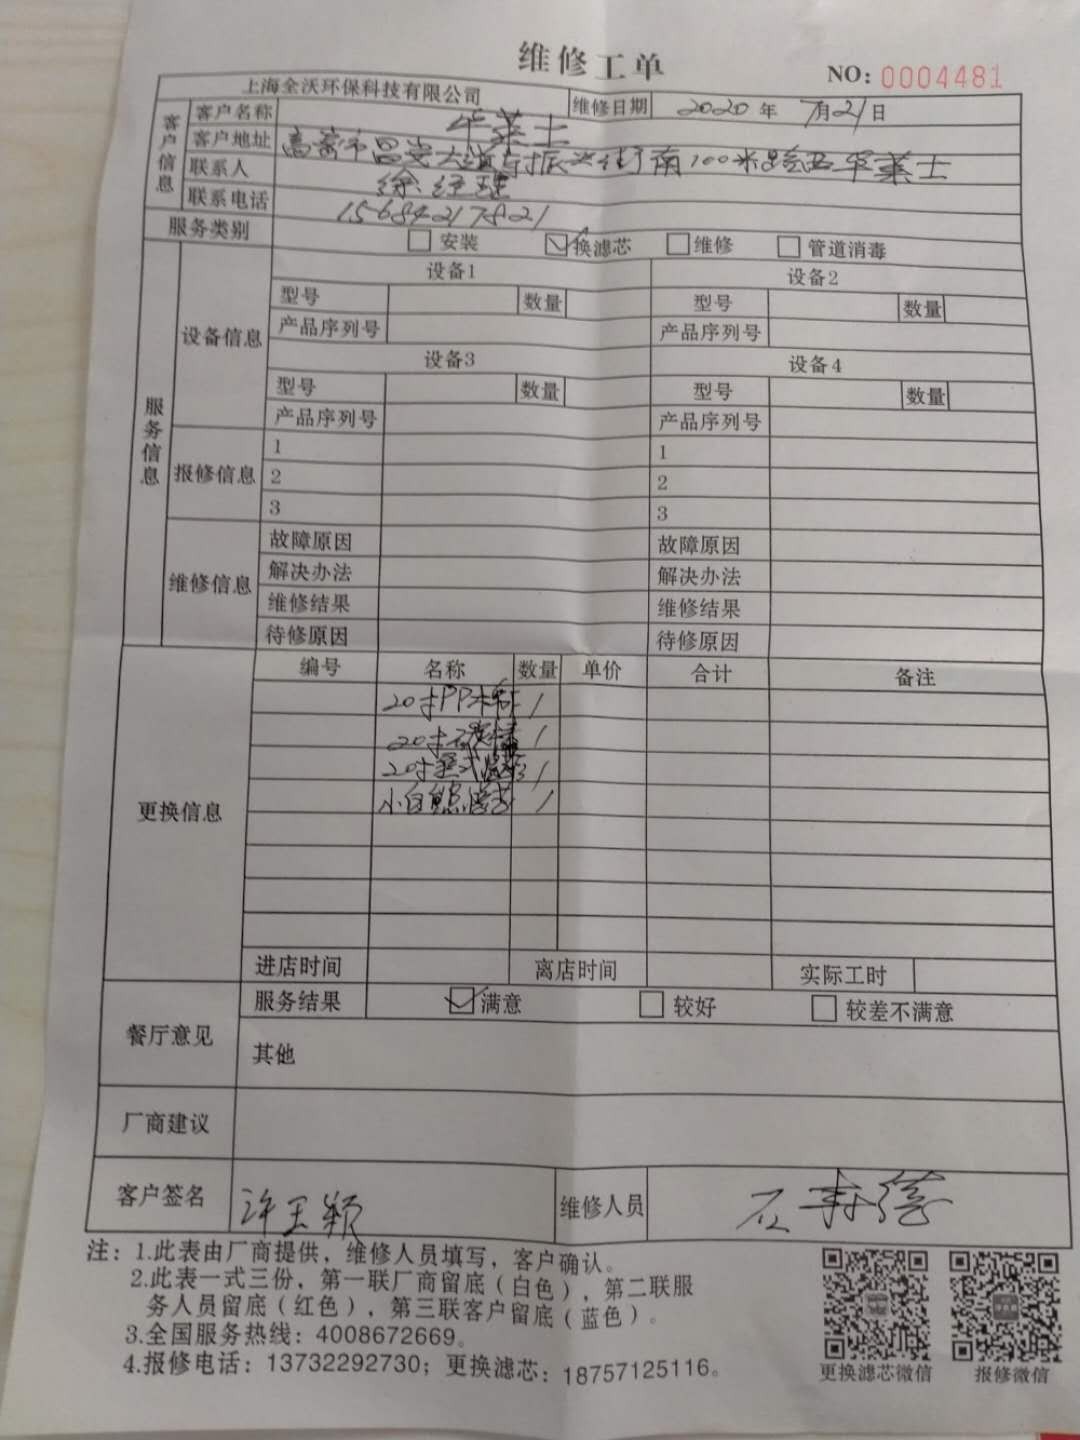 维修工单
NO: 0004481
上海全沃环保科技有限公司 维修日期 2020年7月21日
客户信息
客户名称 华莱士
客户地址 高密市昌安大道与振兴街南100米路西华莱士
联系人 徐经理
联系电话 15684217821
服务类别 安装 换滤芯 维修 管道消毒
服务信息
设备信息
设备1 设备2
型号 数量 型号 数量
产品序列号 产品序列号
设备3 设备4
型号 数量 型号 数量
产品序列号 产品序列号
报修信息
1 1
2 2
3 3
维修信息
故障原因 故障原因
解决办法 解决办法
维修结果 维修结果
待修原因 待修原因
更换信息
编号 名称 数量 单价 合计 备注
20寸PP棉 1
20寸 1
20寸 1
小白熊滤芯 1
进店时间 离店时间 实际工时
餐厅意见
服务结果 满意 较好 较差不满意
其他
厂商建议
客户签名 许玉颖 维修人员 石
注：1.此表由厂商提供，维修人员填写，客户确认。
2.此表一式三份，第一联厂商留底（白色），第二联服
务人员留底（红色），第三联客户留底（蓝色）。
3.全国服务热线：4008672669。
4.报修电话：13732292730；更换滤芯：18757125116。
更换滤芯微信 报修微信